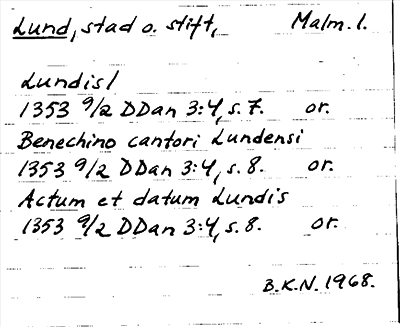 Lund, stad o. stift, Malm. l.
Lundis/
1353 9/2 DDan 3:4, s. 7. or.
Benechino cantori Lundensi
1353 9/2 DDan 3:4, s. 8. or.
Actum et datum Lundis
1353 9/2 DDan 3:4, s. 8. or.
B.K.N. 1968.